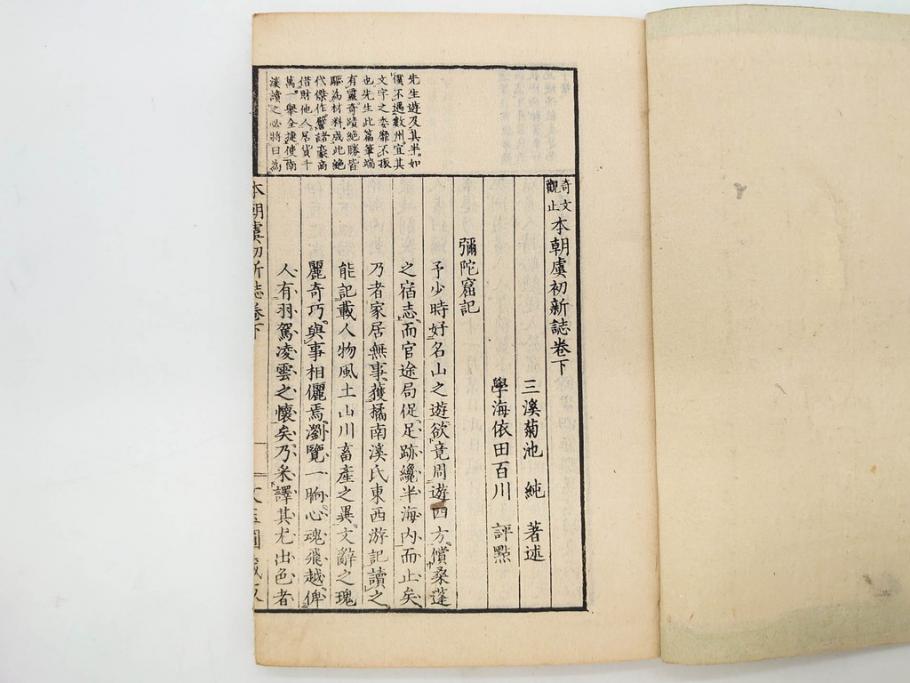 先生遊及其半如
僕不過數州宜其
文字之委靡不振
也先生此篇筆端
有靈奇蹟絕勝皆
驅為材料成此絕
代傑作譬諸豪商
借財他人居貨千
萬一舉全捷使南
溪讀之必將曰為
奇文觀止 本朝虞初新誌卷下
三溪菊池 純 著述
學海依田百川 評點
彌陀窟記
予少時好名山之遊欲竟周遊四方償桑蓬
之宿志而官途局促足跡纔半海内而止矣
乃者家居無事獲橘南溪氏東西游記讀之
能記載人物風土山川畜產之異文辭之瑰
麗奇巧與事相儷焉瀏覽一晌心魂飛越俾
人有羽駕凌雲之懷矣乃釆譯其尤出色者
本朝虞初新誌卷下